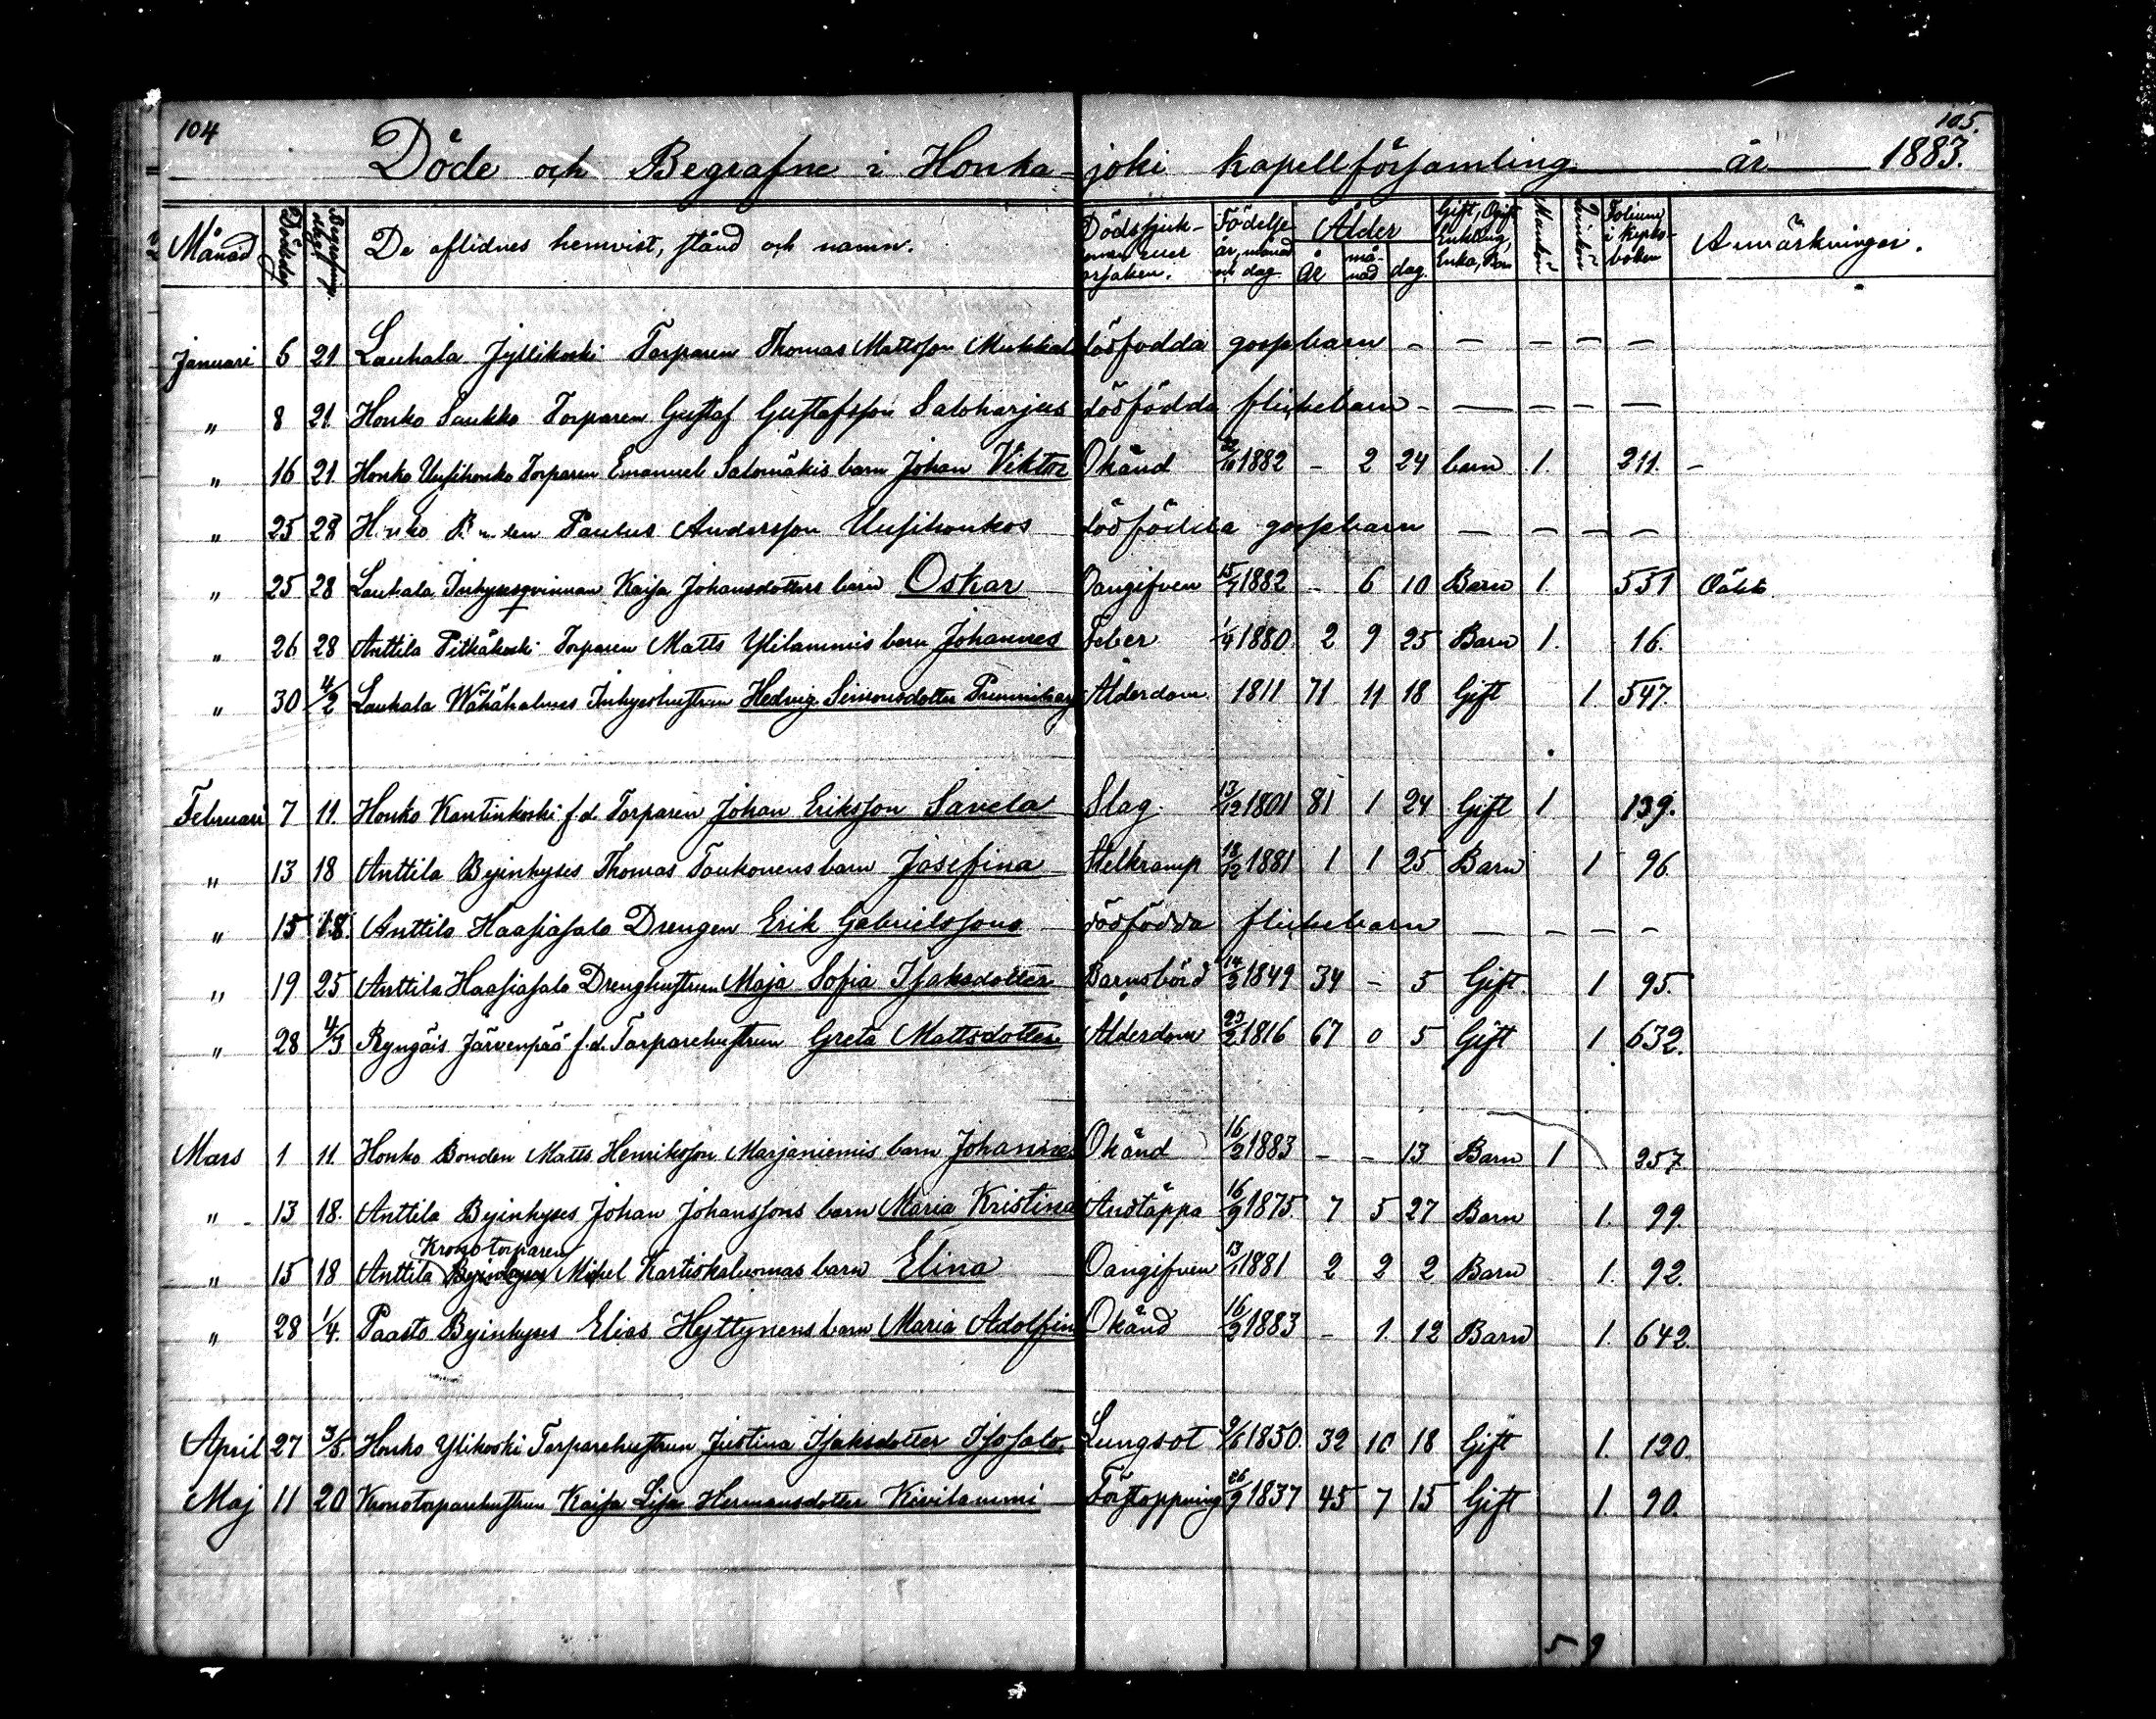 104
105.
Döde och Begrafne i Honkajoki kapellförsamling år 1883.
Månad Dödsdag Begrafningsdag De aflidnes hemvist, stånd och namn. Dödssjukdomen eller orsaken. Födelse år, månad och dag Ålder År månad dag. Gift, Ogift Enkling, Enka, Barn Mankön Qvinkön Folium i kyrkoboken Anmärkningar.
Januari 6 21 Lauhala Jyllikoski Torparen Thomas Mattsson dödfödda gossebarn - - - - -
" 8 21 Honko Saukko Torparen Gustaf Gustafsson Saloharjus dödfödda flickebarn - - - - -
" 16 21 Honko Uusihonko Torparen Emanuel Salomäkis barn Johan Viktor Okänd 1882 - 2 24 barn 1. 211. -
" 25 28 Honko Bonden Paulus Andersson Uusihonkos dödfödda gossebarn - - - -
" 25 28 Lauhala Inhysesqvinnan Kaisa Johansdotters barn Oskar Oangifven 15/7 1882 - 6 10 Barn 1. 531 Oäkta
" 26 28 Anttila Pitkäkoski Torparen Matts Ylilammis barn Johannes Feber 1/4 1880. 2 9 25 Barn 1. 16.
" 30 4/2 Lauhala Wähähalmes Inhyseshustrun Hedvig Simonsdotter Ålderdom 1811 71 11 18 Gift 1. 547.
Februari 7 11. Honko Kantinkoski f.d. Torparen Johan Eriksson Savela Slag 13/12 1801 81 1 24 Gift 1 139.
" 13 18 Anttila Byinhyses Thomas Taukonens barn Josefina Stelkramp 18/12 1881 1 1 25 Barn 1 96.
" 15 18. Anttila Haasiasalo Drengen Erik Gabrielssons dödfödda flickebarn - - - -
" 19 25 Anttila Haasiasalo Drenghustrun Maja Sofia Isaksdotter Barnsbörd 14/2 1849 34 - 5 Gift 1 95.
" 28 4/3 Ryngäis Järvenpää f.d. Torparehustrun Greta Mattsdotter Ålderdom 23/2 1816 67 0 5 Gift 1 632.
Mars 1 11 Honko Bonden Matts Henriksson Marjaniemis barn Johannes Okänd 16/2 1883 - - 13 Barn 1 257
" 13 18. Anttila Byinhyses Johan Johanssons barn Maria Kristina Andtäppa 16/9 1875. 7 5 27 Barn 1. 99.
Kronotorparen
" 15 18 Anttila Byinhyses Mikel Kartiskaluomas barn Elina Oangifven 13/1 1881 2 2 2 Barn 1. 92.
" 28 1/4. Paasto Byinhyses Elias Hyttynens barn Maria Adolfina Okänd 16/2 1883 - 1. 12 Barn 1. 642.
April 27 3/5. Honko Ylikoski Torparehustrun Justina Isaksdotter Isosalo. Lungsot 9/6 1850. 32 10 18 Gift 1. 120.
Maj 11 20 Kronotorparehustrun Kaisa Lisa Hermansdotter Kivilammi Förstoppning 26/9 1837 45 7 15 Gift 1. 90.
5 9